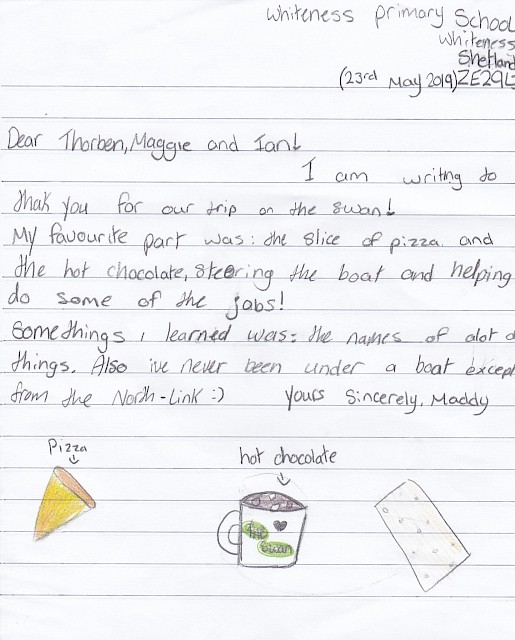 Whiteness primary School
Whiteness
Shetland
(23rd May 2019) ZE29L
Dear Thorben, Maggie and Ian!
I am writing to
thak you for our trip on the swan!
My favourite part was: the slice of pizza and
the hot chocolate, steering the boat and helping
do some of the jobs!
Somethings i learned was: the names of alot o
things. Also ive never been under a boat except
from the North-Link :) Yours Sincerely, Maddy
Pizza
hot chocolate
the
Swan